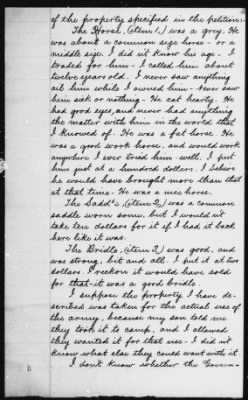 of the property specified in the petition:-
The Horse, (item 1,) was a grey. He
was about a common size horse - or a
middle size. I did n't know his age - I
traded for him - I called him about
twelve years old. I never saw anything
ail him while I owned him - never saw
him sick or nothing - He eat hearty. He
had good eyes, and never had anything
the matter with him in the world that
I knowed of. He was a fat horse. He
was a good work horse, and would work
anywhere I ever tried him well. I put
him just at a hundred dollars. I believe
he would have brought more than that
at that time - He was a nice horse.
The Saddle, (item 2,) was a common
saddle worn some, but I would n't
take ten dollars for it if I had it back
here like it was.
The Bridle (item 3,) was good, and
was strong, bit and all. I put it at two
dollars. I reckon it would have sold
for that - it was a good bridle.
I suppose the property I have de-
scribed was taken for the actual use of
the army, because my son told me
they took it to camp, and I allowed
they wanted it for that use - I did n't
know what else they could want with it
I don't know whether the Govern-